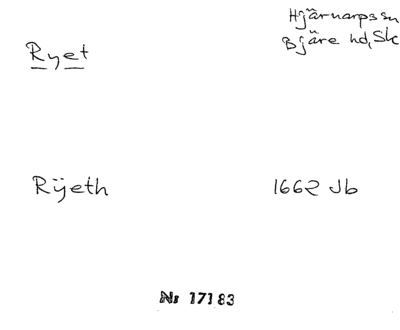 Hjärnarps sn
Bjäre hd, Sk
Ryet
Rÿeth 1662 Jb
Nr 17183